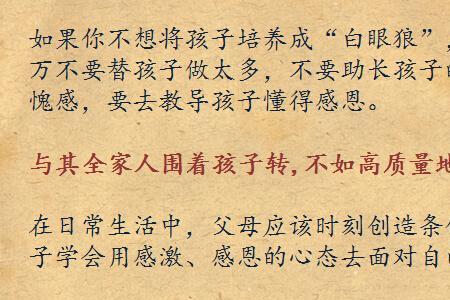 如果你不想将孩子培养成“白眼狼”，
万不要替孩子做太多，不要助长孩子
愧感，要去教导孩子懂得感恩。
与其全家人围着孩子转,不如高质量地
在日常生活中，父母应该时刻创造条
子学会用感激、感恩的心态去面对自